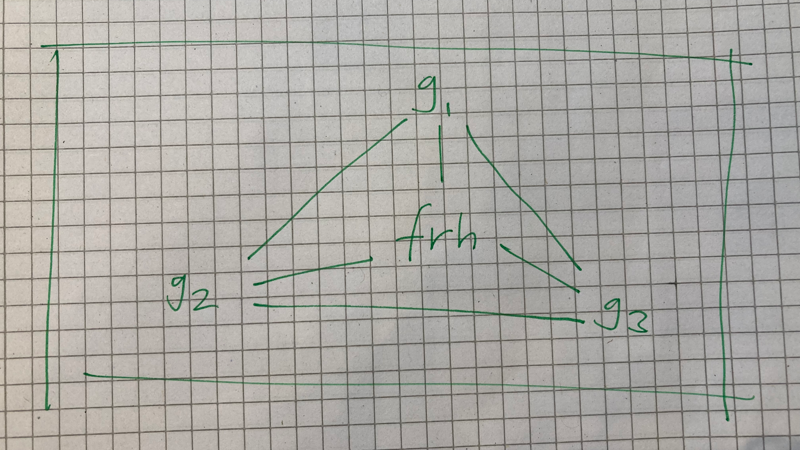 g1
frh
g2
g3